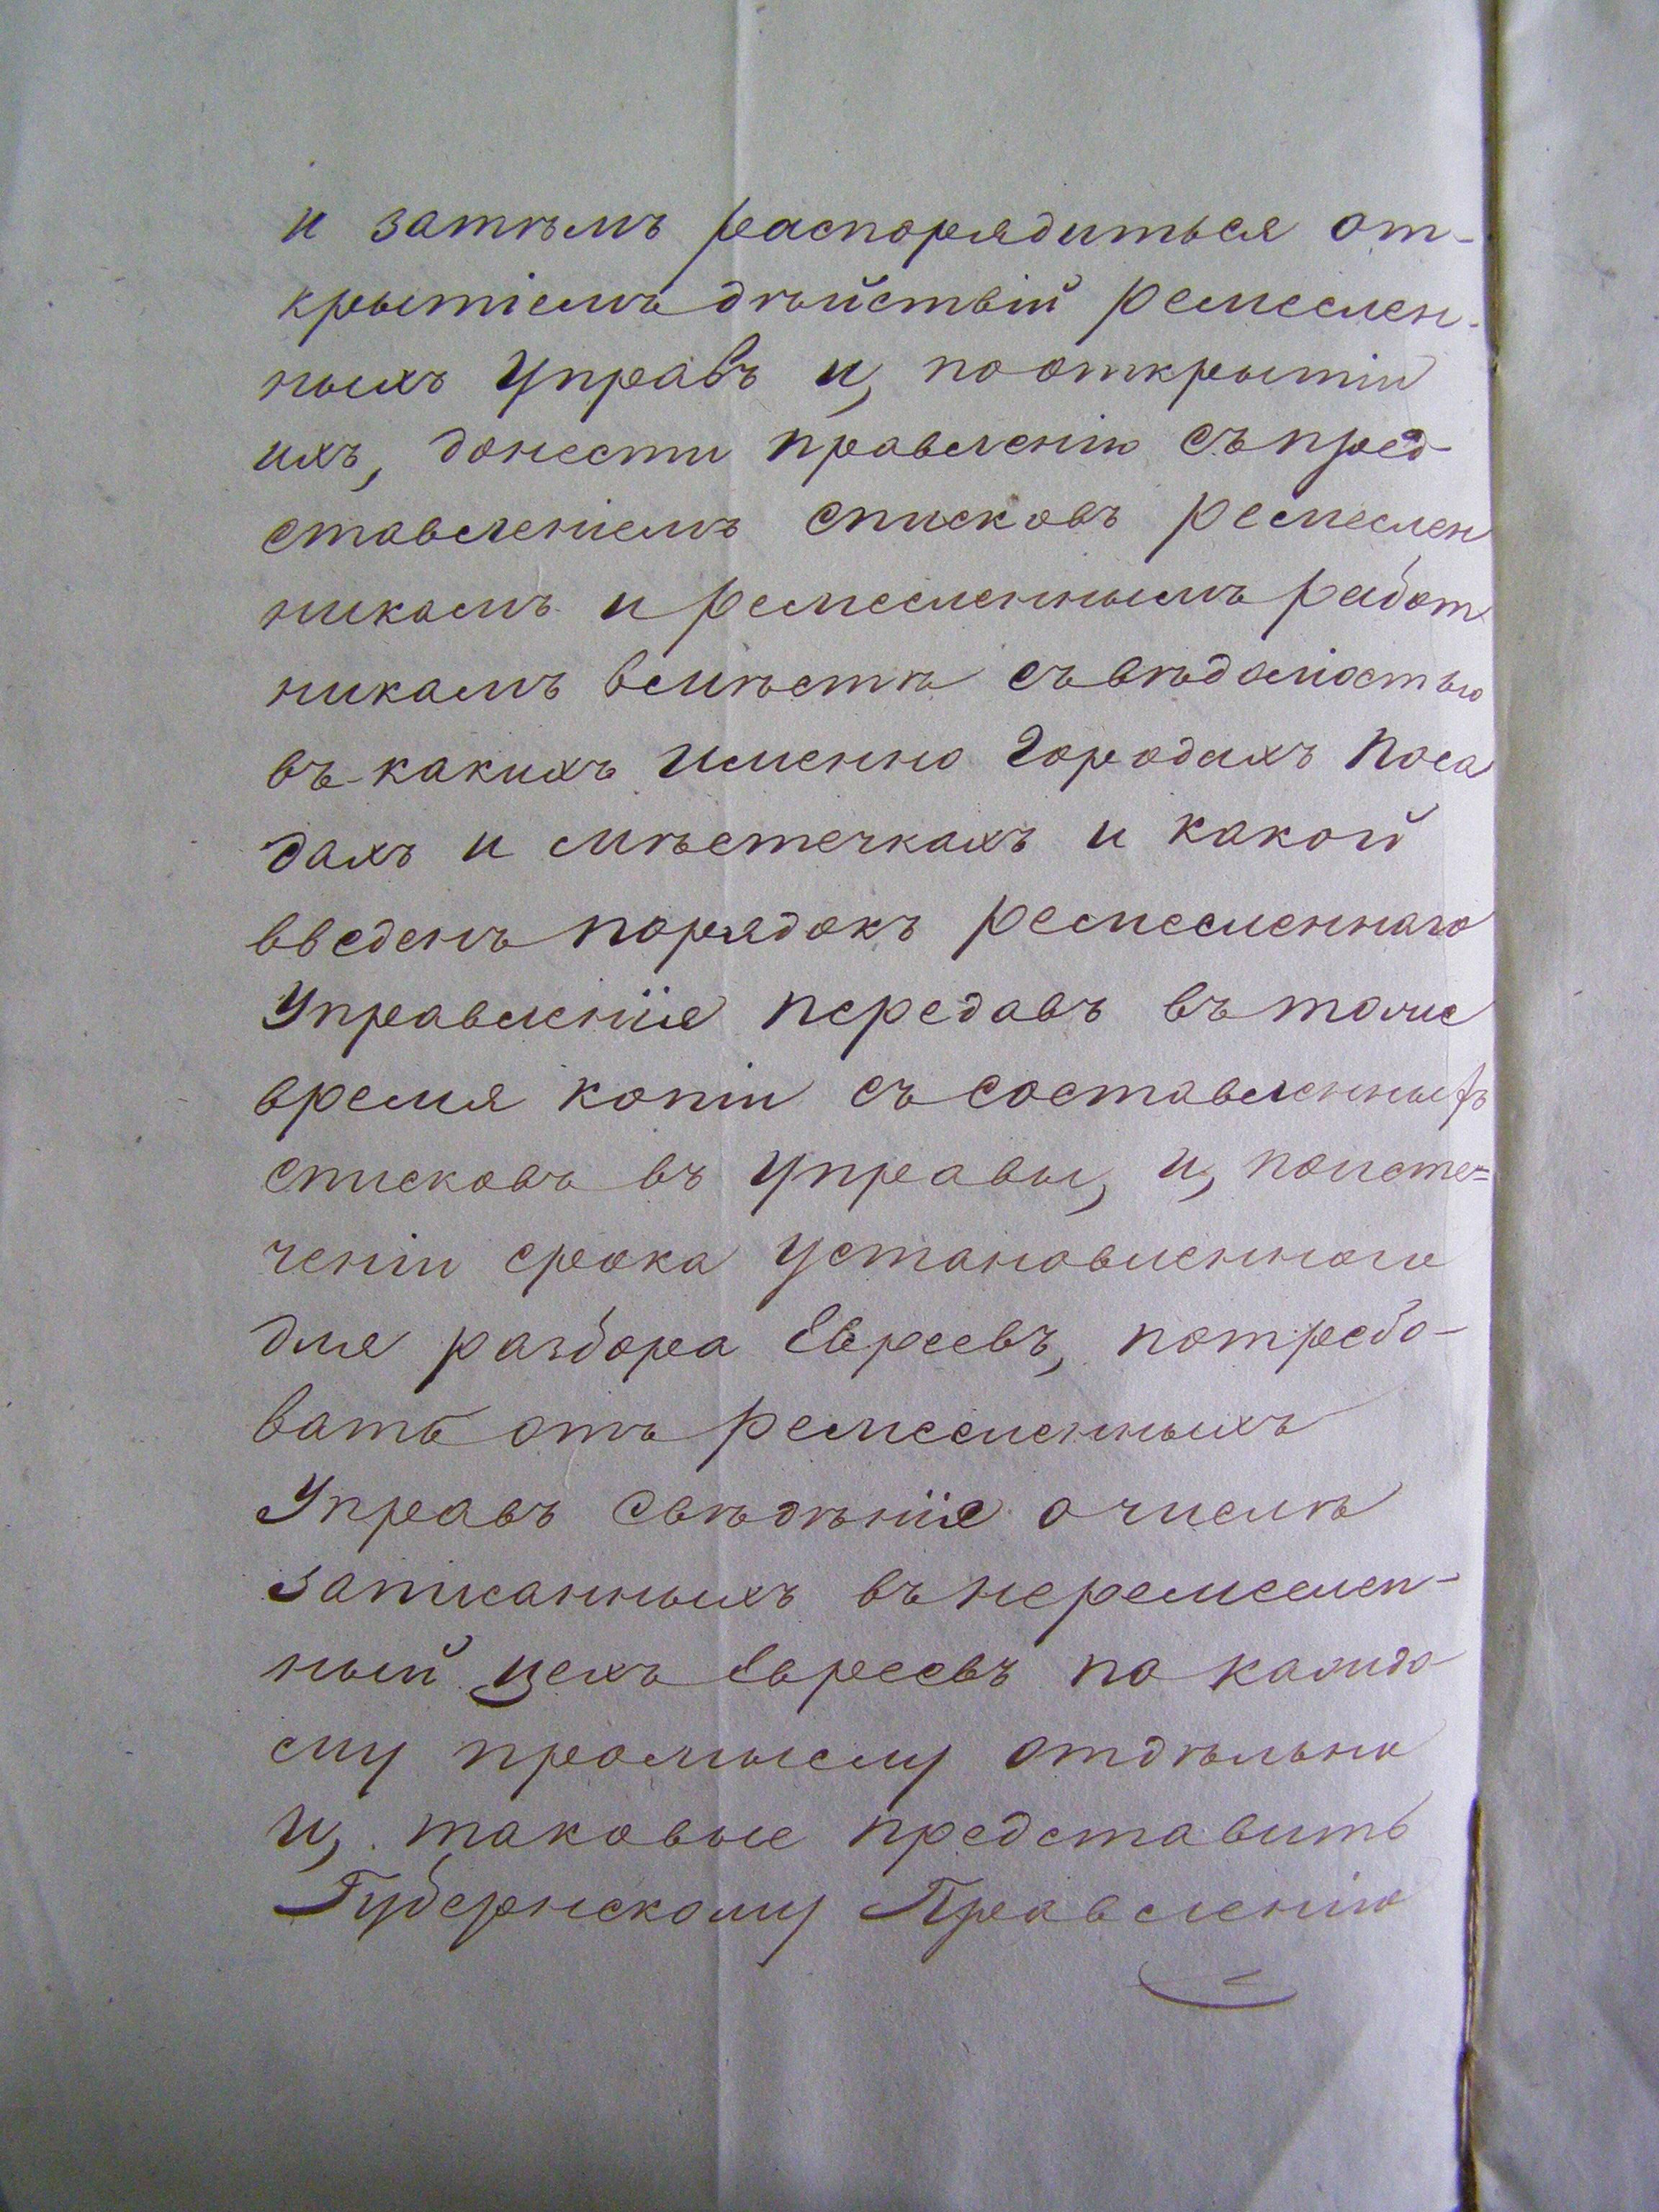 и затѣмъ распорядиться от-
крытіемъ дѣйствій ремеслен-
ныхъ Управъ и, по открытіи
ихъ, донести правленію съ пред-
ставленіемъ списковъ ремеслен
никамъ и ремесленнымъ работ
никамъ вмѣстѣ съ вѣдомостью
въ какихъ именно городахъ поса
дахъ и мѣстечкахъ и какой
введенъ порядокъ ремесленнаго
Управленія передавъ въ тоже
время копіи съ составленныхъ
списковъ въ Управы, и, по исте=
ченіи срока установленнаго
для разбора Евреевъ, потребо-
вать отъ ремесленныхъ
Управъ свѣдѣнія о числѣ
записанныхъ въ неремеслен-
ный цехъ Евреевъ по каждо
му промыслу отдѣльно
и, таковые представить
Губернскому Правленію